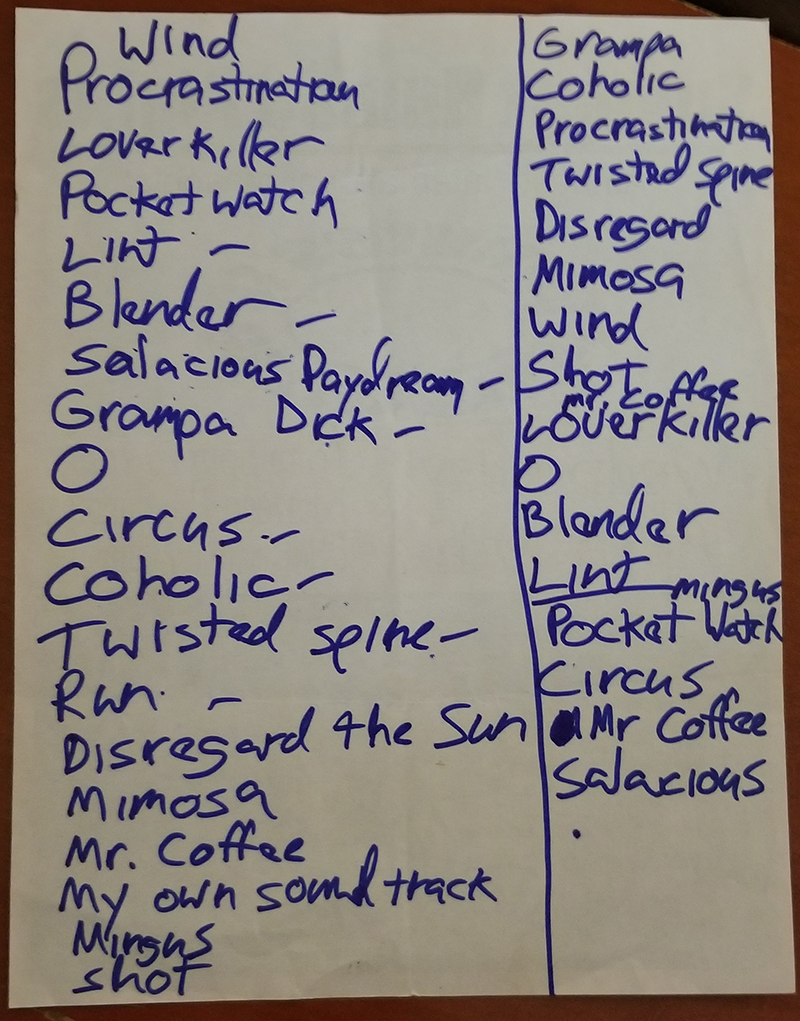 Wind
Procrastination
Loverkiller
Pocket watch
Lint -
Blender -
Salacious Daydream -
Grampa Dick -
O
Circus -
Coholic -
Twisted spine -
Run -
Disregard the Sun
Mimosa
Mr. Coffee
My own soundtrack
Mingus
shot
Grampa
Coholic
Procrastination
Twisted spine
Disregard
Mimosa
Wind
Shot
mr. coffee
Loverkiller
O
Blender
Lint
mingus
Pocket Watch
Circus
Mr Coffee
Salacious